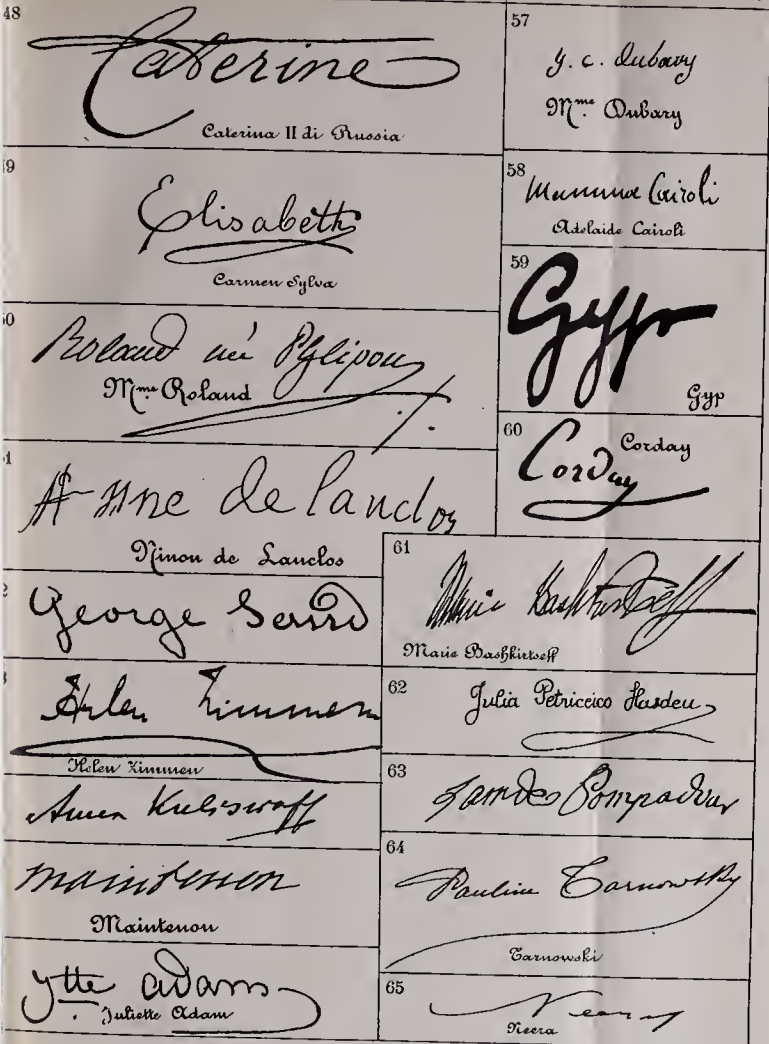 48
Caterine
Caterina II di Russia
Elisabeth
Carmen Sylva
Mme Roland
Ninon de Lanclos
George Sand
Helen Zimmern
Helen Zimmen
Anna Kuliscioff
Maintenon
Maintenon
Jtte adam
Juliette Adam
57
Mme Dubary
58
Mamma Cairoli
Adelaide Cairoli
59
Gyp
Gyp
60
Corday
Corday
61
Marie Bashkirtseff
Marie Bashkirtseff
62
Julia Petriceico Hasdeu
63
Pompadour
64
Pauline Tarnowsky
Tarnowski
65
Neera
Neera